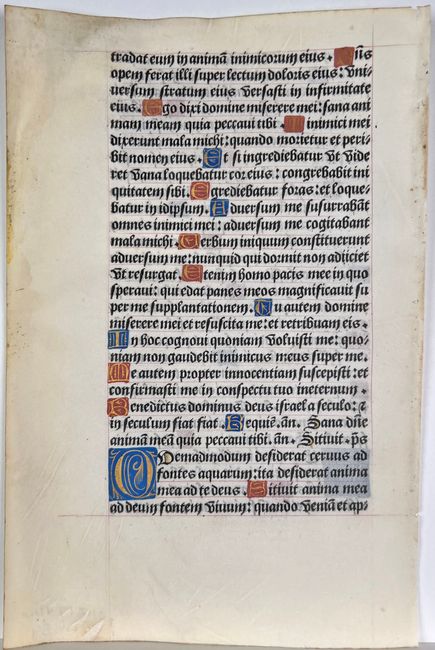 tradat eum in animā inimicorum eius. Dn̄s
opem ferat illi super lectum doloris eius: vni-
uersum stratum eius versasti in infirmitate
eius. Ego dixi domine miserere mei: sana ani
mam meam quia peccaui tibi. Inimici mei
dixerunt mala michi: quando morietur et peri-
bit nomen eius. Et si ingrediebatur vt vide
ret vana loquebatur cor eius: congregabit ini
quitatem sibi. Egrediebatur foras: et loque-
batur in idipsum. Aduersum me susurrabāt
omnes inimici mei: aduersum me cogitabant
mala michi. Uerbum iniquum constituerunt
aduersum me: nunquid qui dormit non adijciet
vt resurgat. Etenim homo pacis mee in quo
speraui: qui edat panes meos magnificauit su
per me supplantationem. Tu autem domine
miserere mei et resuscita me: et retribuam eis.
In hoc cognoui quoniam voluisti me: quo-
niam non gaudebit inimicus meus super me.
Me autem propter innocentiam suscepisti: et
confirmasti me in conspectu tuo ineternum.
Benedictus dominus deus israel a seculo: ⁊
in seculum fiat fiat. Requiē. an̄. Sana dn̄e
animā meā quia peccaui tibi. an̄. Sitiuit. p̄s
Quemadmodum desiderat ceruus ad
fontes aquarum: ita desiderat anima
mea ad te deus. Sitiuit anima mea
ad deum fontem viuum: quando veniā et ap-